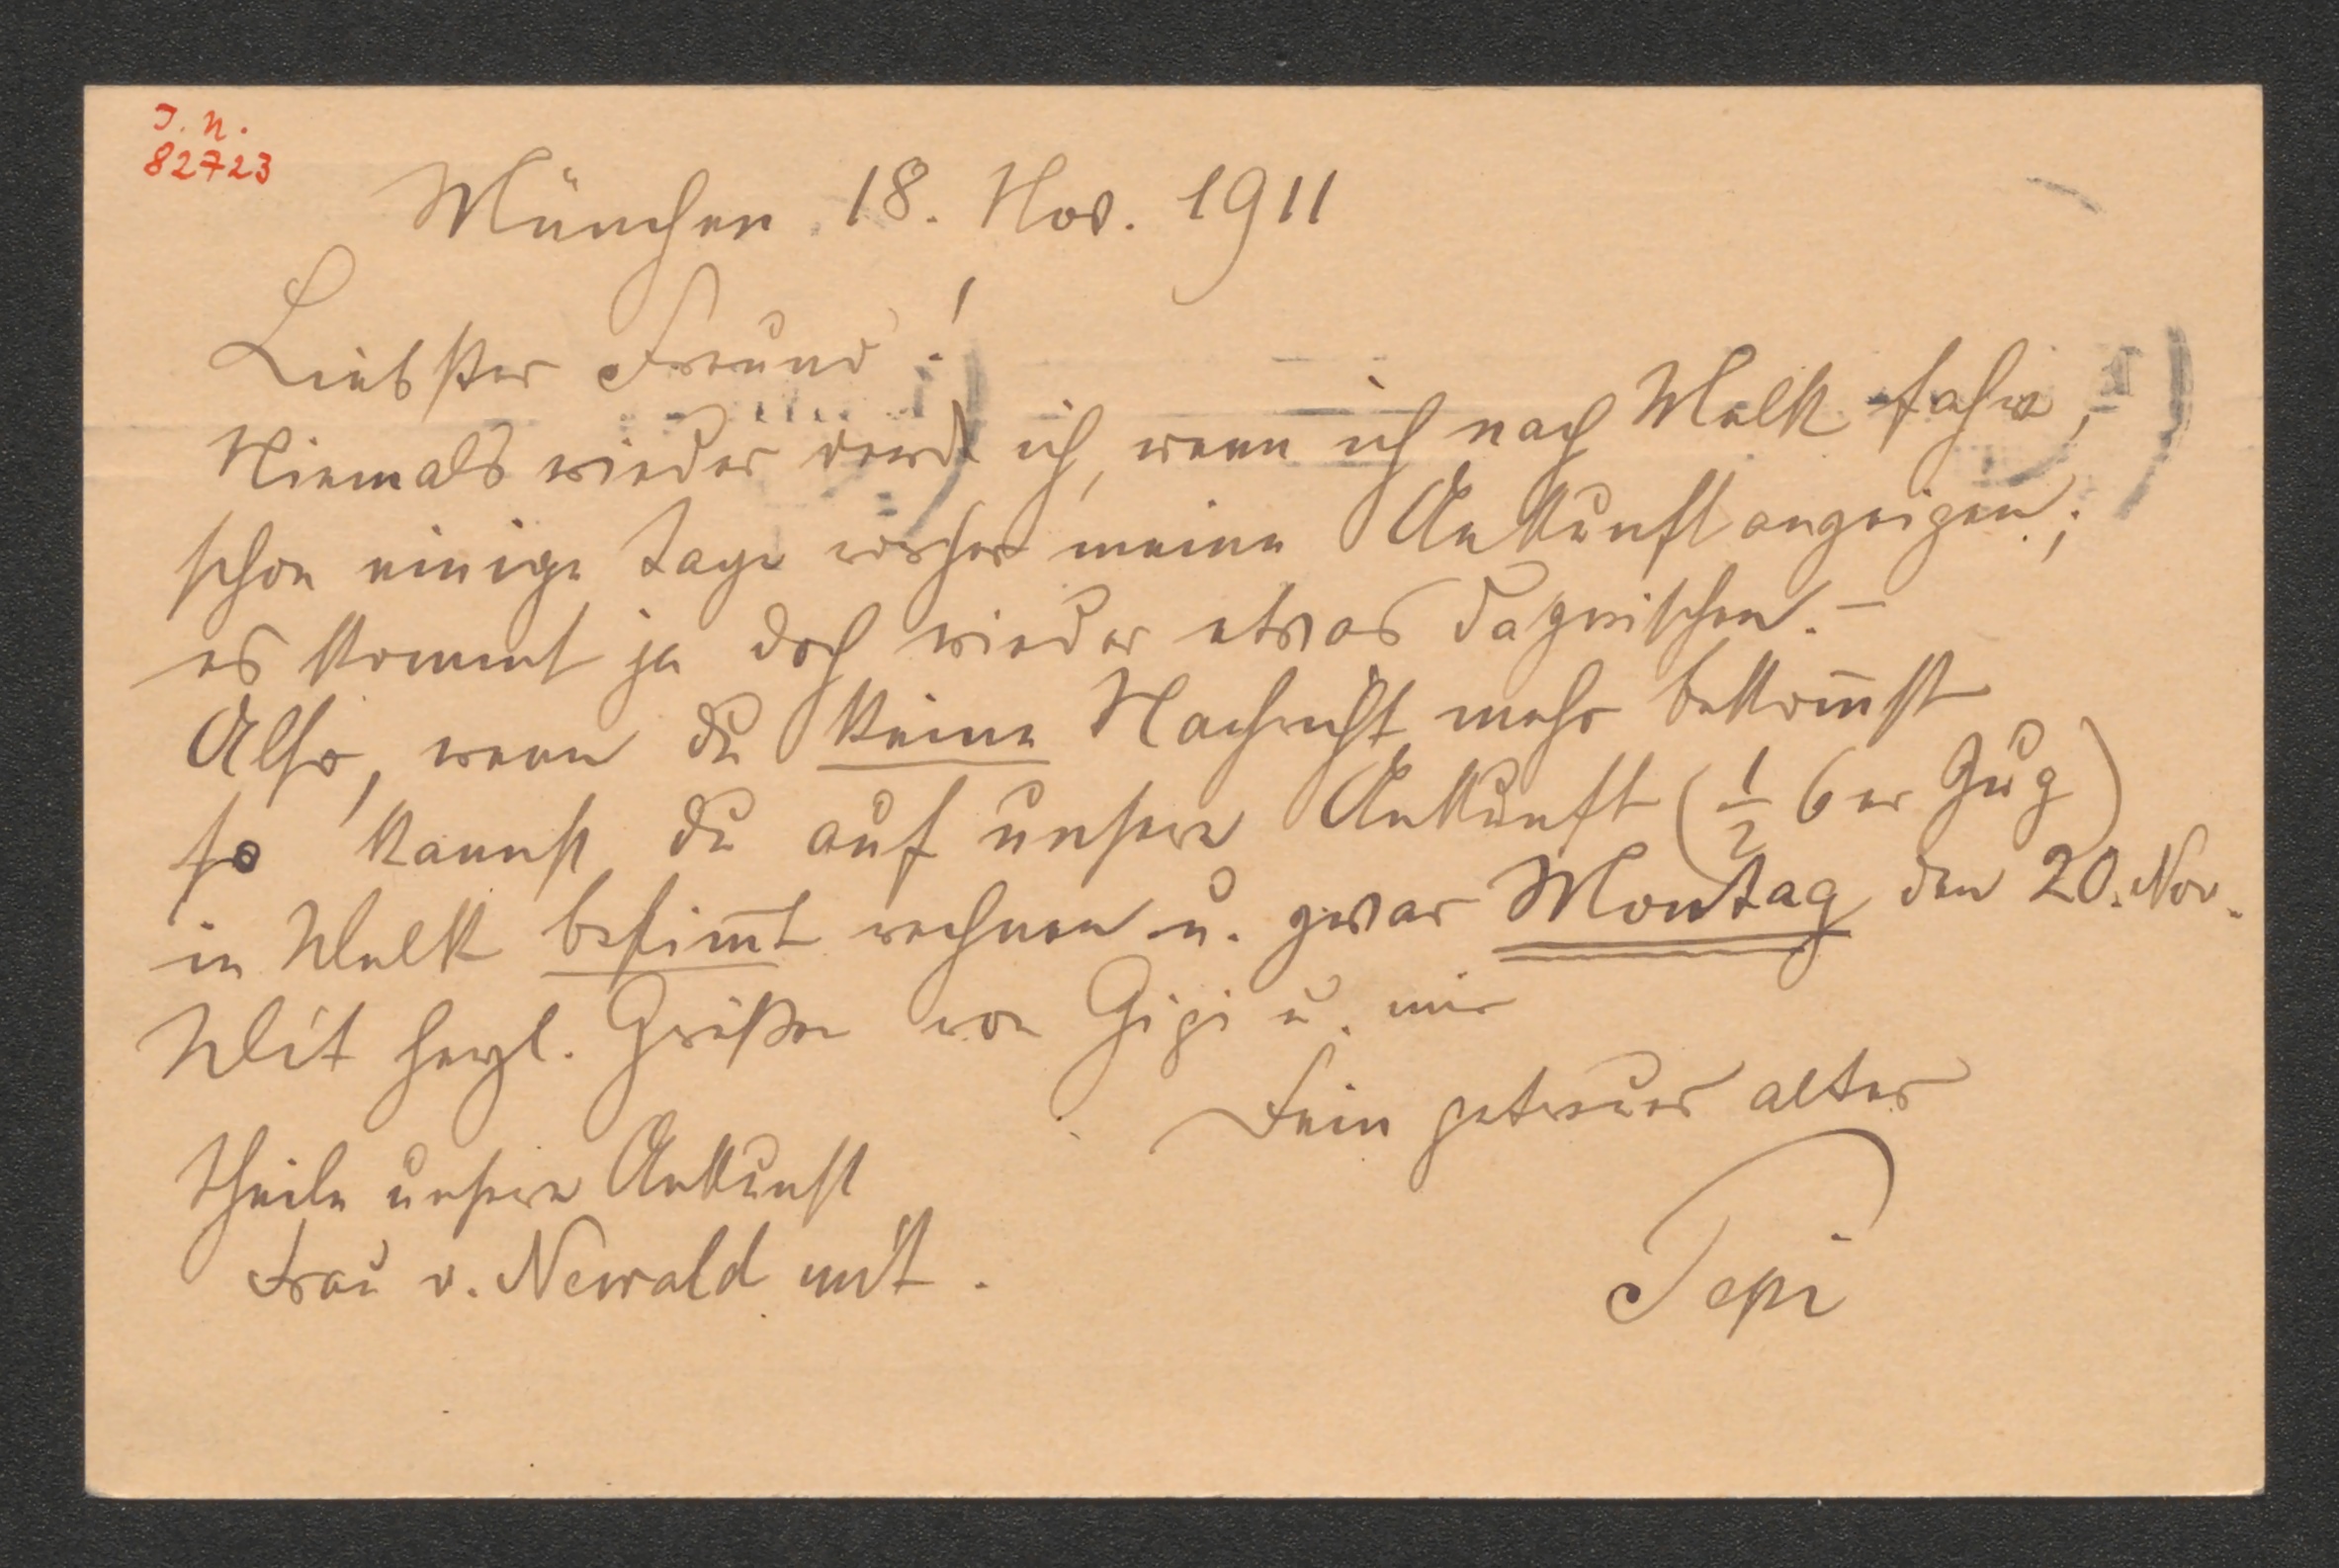 I. N.
82723
München 18. Nov. 1911
Liebster Freund!
Niemals wieder werde ich, wenn ich nach Melk fahre,
schon einige Tage vorher meine Ankunft anzeigen;
es kommt ja doch wieder etwas dazwischen. –
Also, wenn du keine Nachricht mehr bekom̅st
so kannst du auf unsere Ankunft (½ 6er Zug)
in Melk bestim̅t rechnen u. zwar Montag den 20. Nov.
Mit herzl. Grüßen von Gigi u. mir
Dein getreuer alter
Pepi
Theile unsere Ankunft
Frau v. Newald mit.